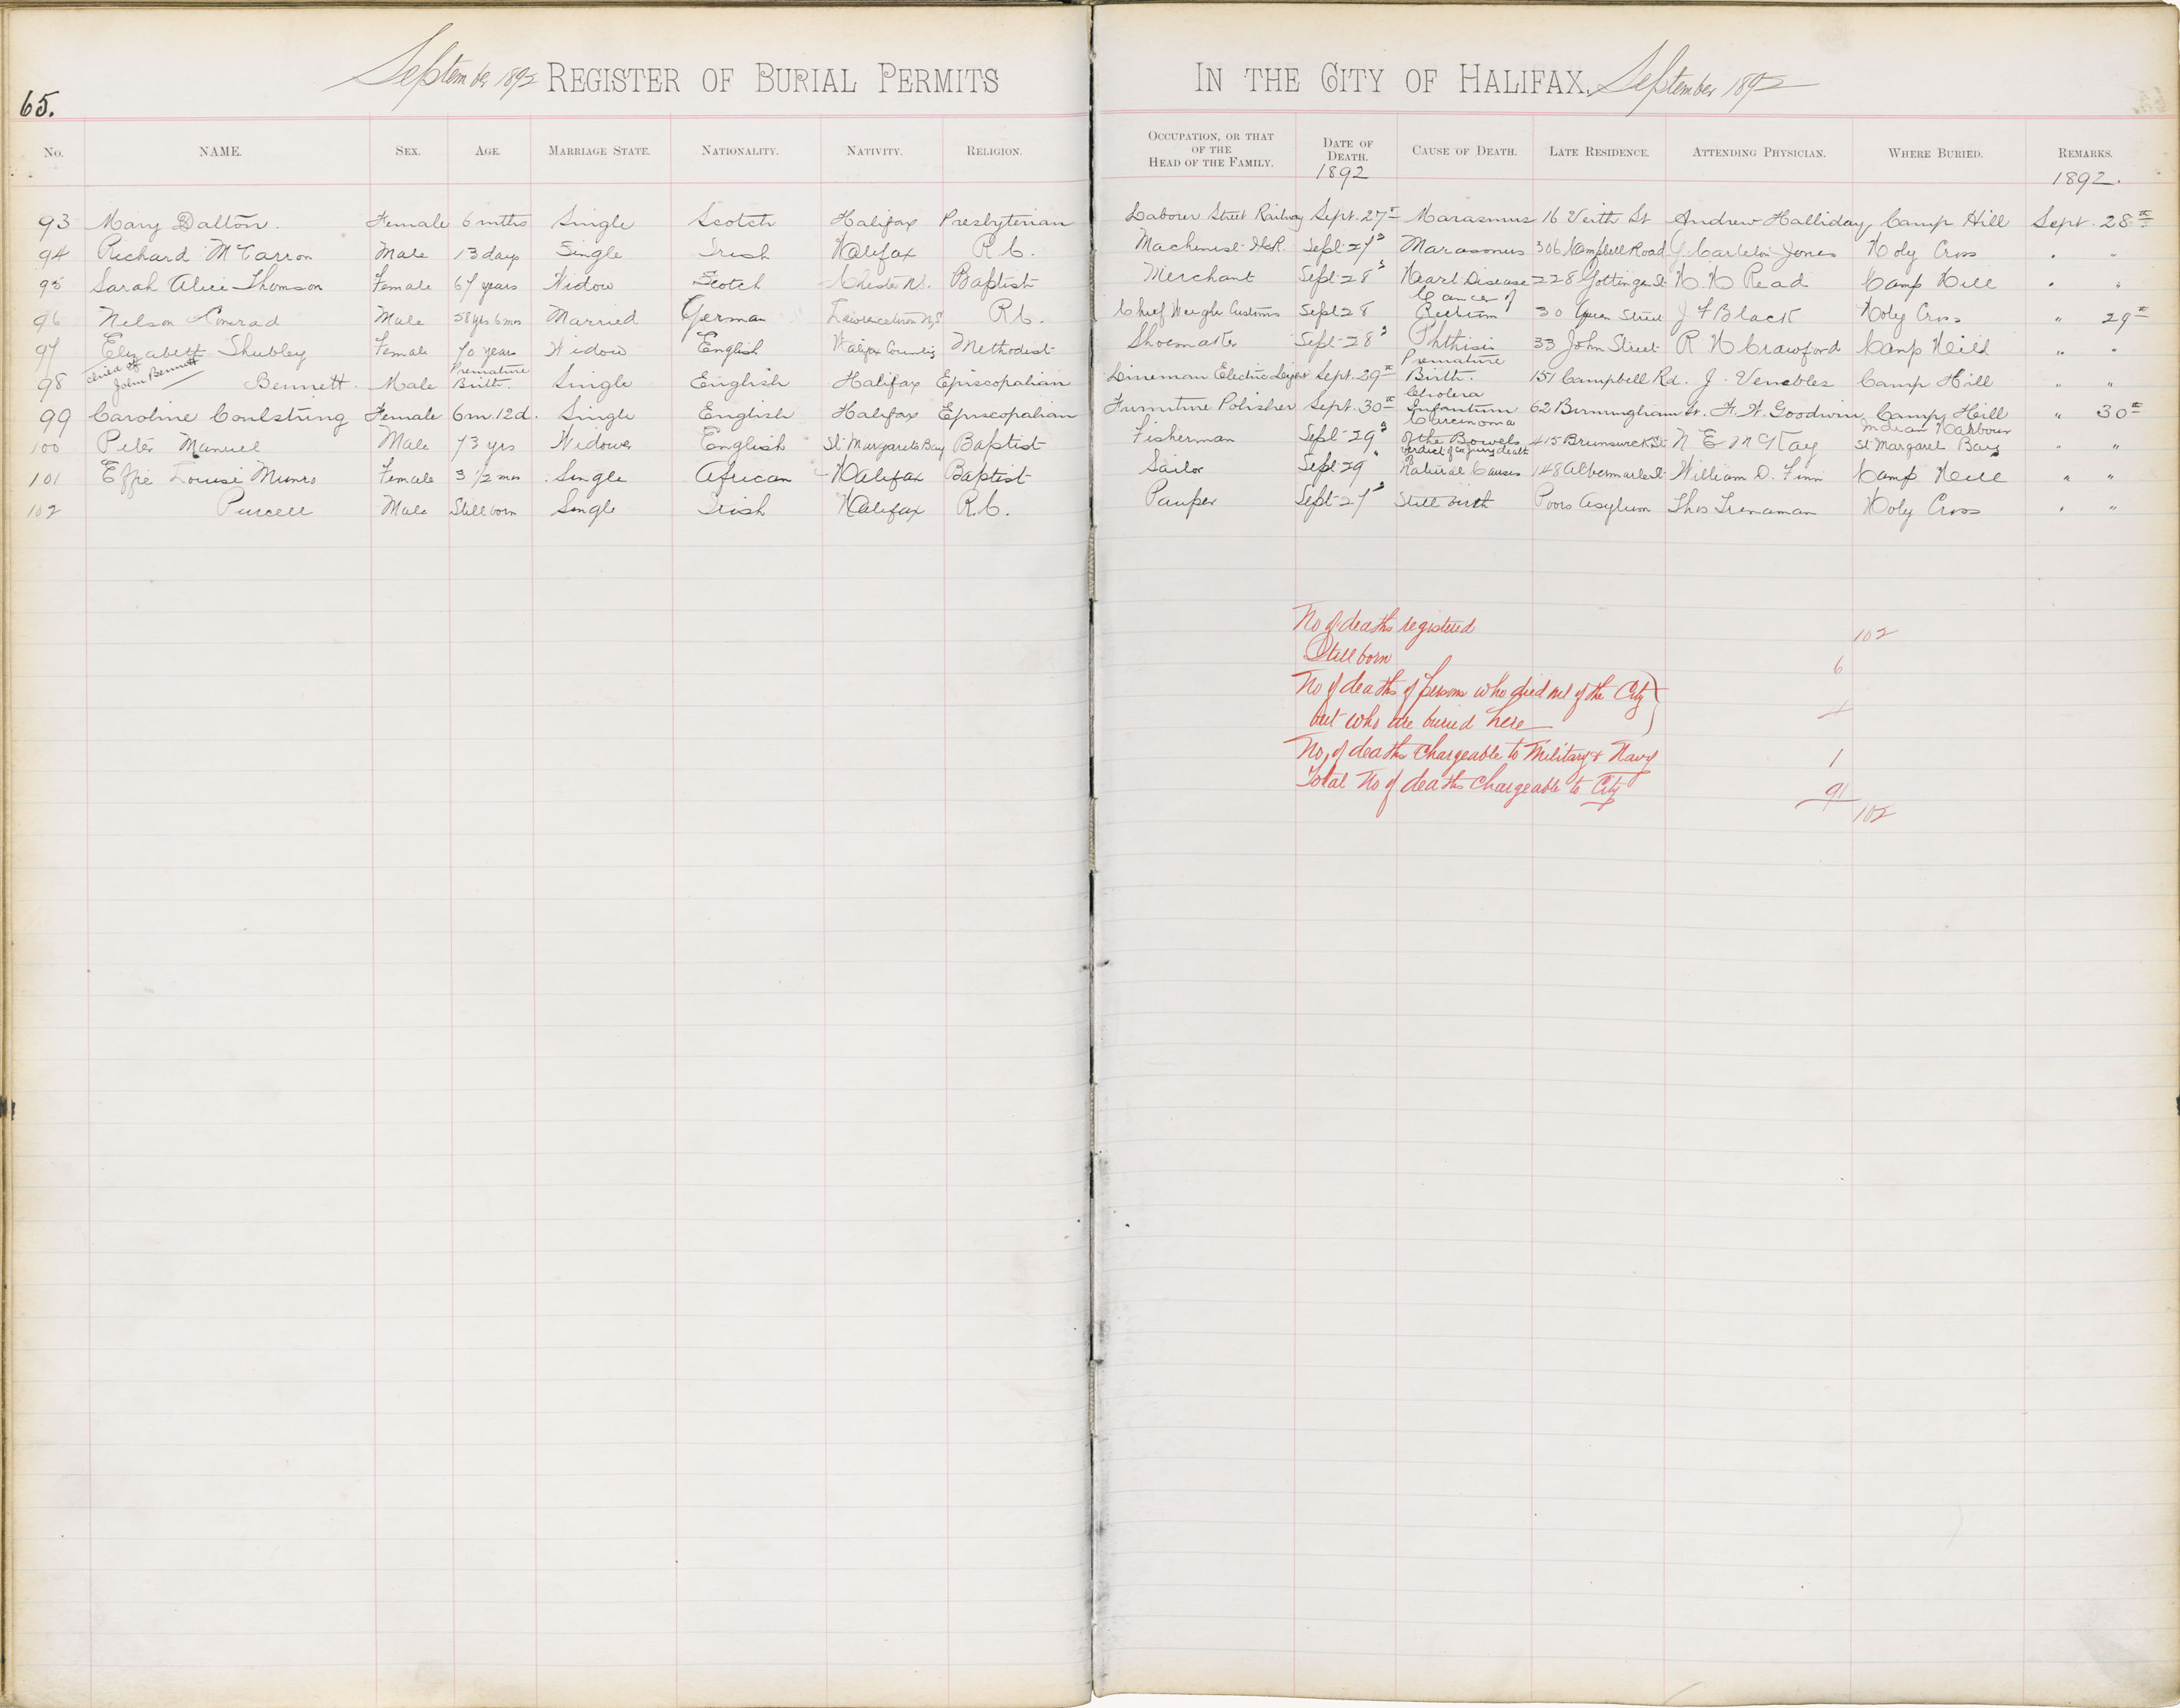 65.
September 1892 REGISTER OF BURIAL PERMITS IN THE CITY OF HALIFAX. September 1892
No. NAME. SEX. AGE. MARRIAGE STATE. NATIONALITY. NATIVITY. RELIGION. OCCUPATION, OR THAT OF THE HEAD OF THE FAMILY. DATE OF DEATH. 1892 CAUSE OF DEATH. LATE RESIDENCE. ATTENDING PHYSICIAN. WHERE BURIED. REMARKS. 1892.
93 Mary Dalton. Female 6 mths Single Scotch Halifax Presbyterian Laborer Street Railway Sept. 27th Marasmus 16 Veith St Andrew Halliday Camp Hill Sept. 28th
94 Richard McCarron Male 13 days Single Irish Halifax R.C. Machinist Sept 27 Marasmus 306 Campbell Road J. Carleton Jones Holy Cross " "
95 Sarah Alice Thomson Female 67 years Widow Scotch Chester N.S. Baptist Merchant Sept 28 Heart Disease 228 Gottingen St H. H. Read Camp Hill " "
96 Nelson Conrad Male 58 yrs 6 mos Married German Lawrencetown N.S R.C. Chief Weigher Customs Sept 28 Cancer of Rectum 30 Queen Street J F Black Holy Cross " 29th
97 Elizabeth Shubley Female 70 years Widow English Halifax County Methodist Shoemaker Sept 28 Phthisis 33 John Street R H Crawford Camp Hill " "
98 child of John Bennett Bennett. Male Premature Birth. Single English Halifax Episcopalian Lineman Electric Light Sept. 29th Premature Birth. 151 Campbell Rd. J. Venables Camp Hill " "
99 Caroline Coulstring Female 6m. 12d. Single English Halifax Episcopalian Furniture Polisher Sept. 30th Cholera Infantum 62 Birmingham St. F. W. Goodwin Camp Hill " 30th
100 Peter Manuel Male 73 yrs Widower English St Margarets Bay Baptist Fisherman Sept 29 Carcinoma of the Bowels 415 Brunswick St N E McKay Indian Harbour St Margaret Bay " "
101 Effie Louise Munro Female 3 1/2 mos Single African Halifax Baptist Sailor Sept 29 verdict of Natural Causes 148 Albermarle St William D. Finn Camp Hill " "
102 Purcell Male Stillborn Single Irish Halifax R.C. Pauper Sept 27 Still birth Poors Asylum Thos Trenaman Holy Cross " "
No of deaths registered 102
Still born 6
No of deaths of persons who died out of the City
but who are buried here 4
No, of deaths Chargeable to Military & Navy 1
Total No of deaths Chargeable to City 91
102